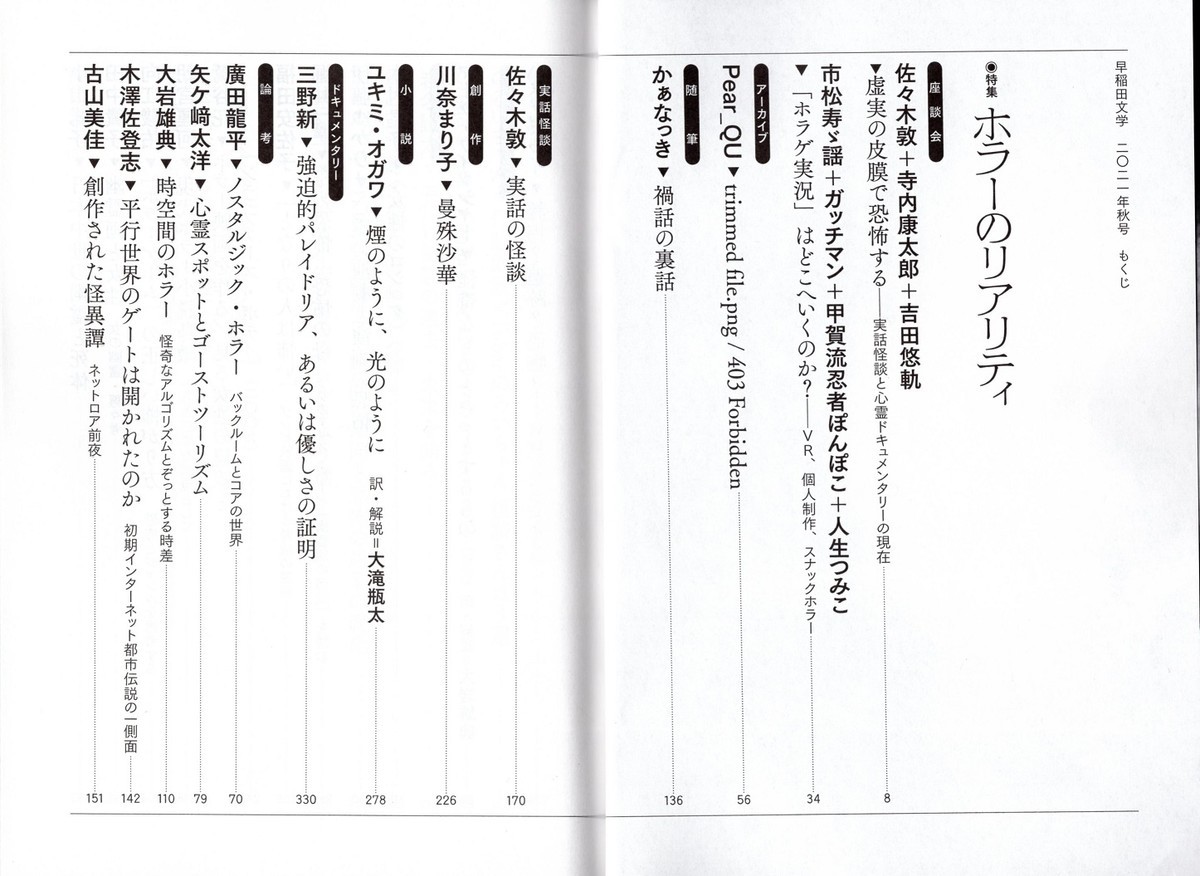 早稲田文学 二〇二一年秋号 もくじ
◉特集 ホラーのリアリティ
座談会
佐々木敦＋寺内康太郎＋吉田悠軌
▼虚実の皮膜で恐怖する――実話怪談と心霊ドキュメンタリーの現在 8
市松寿ゞ謡＋ガッチマン＋甲賀流忍者ぽんぽこ＋人生つみこ
▼「ホラゲ実況」はどこへいくのか？――VR、個人制作、スナックホラー 34
アーカイブ
Pear_QU▼trimmed file.png / 403 Forbidden 56
随筆
かぁなっき▼禍話の裏話 136
実話怪談
佐々木敦▼実話の怪談 170
創作
川奈まり子▼曼殊沙華 226
小説
ユキミ・オガワ▼煙のように、光のように 訳・解説＝大滝瓶太 278
ドキュメンタリー
三野新▼強迫的パレイドリア、あるいは優しさの証明 330
論考
廣田龍平▼ノスタルジック・ホラー バックルームとコアの世界 70
矢ケ﨑太洋▼心霊スポットとゴーストツーリズム 79
大岩雄典▼時空間のホラー 怪奇なアルゴリズムとぞっとする時差 110
木澤佐登志▼平行世界のゲートは開かれたのか 初期インターネット都市伝説の一側面 142
古山美佳▼創作された怪異譚 ネットロア前夜 151